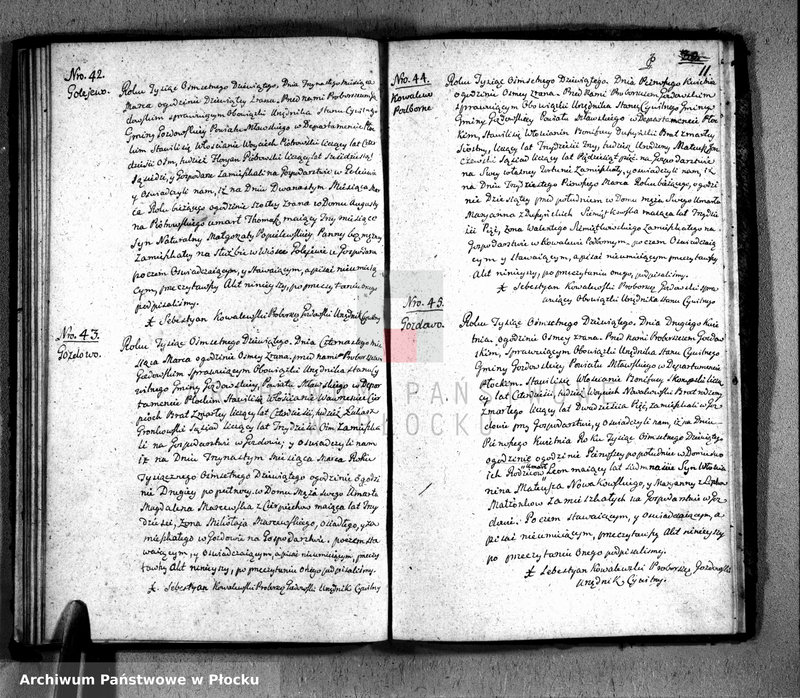 Nro. 42.
Golejewo.
Roku Tysiąc Ośmsetnego Dziewiątego, Dnia Trzynastego Miesiąca
Marca o godzinie Dziewiątey zrana. Przed Nami Proboszczem
sprawuiącym Obowiązki Urzędnika Stanu Cywilnego
Gminy Gozdowskiey Powiatu Mławskiego w Departamencie Płoc-
kim Stawili się Włościanie Woyciech Piotrowski liczący lat Czter-
dzieści Ośm, tudzież Floryan Piotrowski liczący lat
Sąsiedzi, y Gospodarze Zamieszkali na Gospodarstwie w Golejewie
y Oświadczyli nam, iż na Dniu Dwunastym Miesiąca Mar-
ca Roku bieżącego o godzinie szóstey zrana w Domu
na Piotrowskiego umarł Thomasz maiący Trzy miesiące
Syn Naturalny Małgorzaty Popielewskiey Panny bez męża
Zamieszkałey na Służbie w Wiosce Golejewie w Gospodarza
poczem Oświadczaiącym, y stawaiącym, a pisać nieumieią-
cym, przeczytawszy Akt ninieyszy, po przeczytaniu onego
podpisaliśmy.
X. Sebestyan Kowalewski Proboszcz Gozdowski Urzędnik Cywilny
Nro. 43.
Gozdowo.
Roku Tysiąc Ośmsetnego Dziewiątego. Dnia Czternastego Mie-
siąca Marca o godzinie Osmey zrana, przed nami Proboszczem
Gozdowskim Sprawuiącym Obowiązki Urzędnika Stanu Cy-
wilnego Gminy Gozdowskiey, Powiatu Mławskiego w Depar-
tamencie Płockim Stawili się Włościanie Wawrzeniec
Brat Zmarłey liczący lat Czterdzieści, tudzież Łukasz
Gronkowski Sąsiad liczący lat Trzydzieści Ośm Zamieszka-
li na Gospodarstwie w Gozdowie; y Oświadczyli nam
iż na Dniu Trzynastym Miesiąca Marca Roku
Tysiącznego Ośmsetnego Dziewiątego o godzinie
Drugiey po północy, w Domu Męża swego Umarła
Magdalena Marzewska z Cierpichów maiąca lat Trzy-
dzieści, Żona Mikołaja Marzewskiego, Osiadłego, y za-
mieszkałego w Gozdowie na Gospodarstwie. poczem sta-
waiącym, y oświadczaiącym, a pisać nieumieiącym, przeczy-
tawszy Akt ninieyszy, po przeczytaniu onego podpisaliśmy.
X. Sebestyan Kowalewski Proboszcz Gozdowski Urzędnik Cywilny
11.
Nro. 44.
Kowalewo
Podborne
Roku Tysiąc Ośmsetnego Dziewiątego. Dnia Pierwszego Kwietnia
o godzinie Osmey zrana. Przed Nami Proboszczem Gozdowskim
sprawuiącym Obowiązki Urzędnika Stanu Cywilnego Gminy
Gminy Gozdowskiey Powiatu Mławskiego w Departamencie Płoc-
kim, Stawili się Włościanin Bonifacy Brat zmarłey
Siostry, liczący lat Trzydzieści Trzy, tudzież Matusz
Sąsiad liczący lat Pięćdziesiąt pięć na Gospodarstwie
na Swey własney Zamieszkały, y oświadczyli nam, iż
na Dniu Trzydziestego Pierwszego Marca Roku bieżącego, o godzi-
nie Dziesiątey przed południem w Domu męża Swego Umarła
Maryanna maiąca lat Trzydzie-
ści Pięć, Żona Walentego Zamieszkałego na
Gospodarstwie w Kowalewie Podbornym. poczem Oświadczaią-
cym y stawaiącym, a pisać nieumieiącym przeczytawszy
Akt ninieyszy, po przeczytaniu onego, podpisaliśmy.
X. Sebestyan Kowalewski Proboszcz Gozdowski spra-
wuiący Obowiązki Urzędnika Stanu Cywilnego
Nro. 45.
Gozdowo.
Roku Tysiąc Ośmsetnego Dziewiątego. Dnia Drugiego Kwie-
tnia, o godzinie Osmey zrana. Przed Nami Proboszczem Gozdow-
skim, Sprawuiącym Obowiązki Urzędnika Stanu Cywilnego
Gminy Gozdowskiey, Powiatu Mławskiego w Departamencie
Płockim Stawili się Włościanie Bonifacy liczą-
cy lat Czterdzieści, tudzież Woyciech Nowakowski Brat rodzony
zmarłego liczący lat Dwadzieścia Pięć, Zamieszkali w Goz-
dowie przy Gospodarstwie, y Oświadczyli nam, iż na Dniu
Pierwszego Kwietnia Roku Tysiąc Ośmsetnego Dziewiątego
o godzinie Pierwszey po południu w Domostwie
ich Rodziców umarł Leon maiący lat Siedmnaście Syn Włościa-
nina Mateusza Nowakowskiego, y Maryanny
Małżonków Zamieszkałych na Gospodarstwie w Goz-
dowie. Poczem stawaiącym, y oświadczaiącym, a
pisać nieumieiącym, przeczytawszy Akt ninieyszy
po przeczytaniu onego podpisaliśmy.
X. Sebestyan Kowalewski Proboszcz Gozdowski
Urzędnik Cywilny.
PAŃ
ŁOCK
Archiwum Państwowe w Płocku